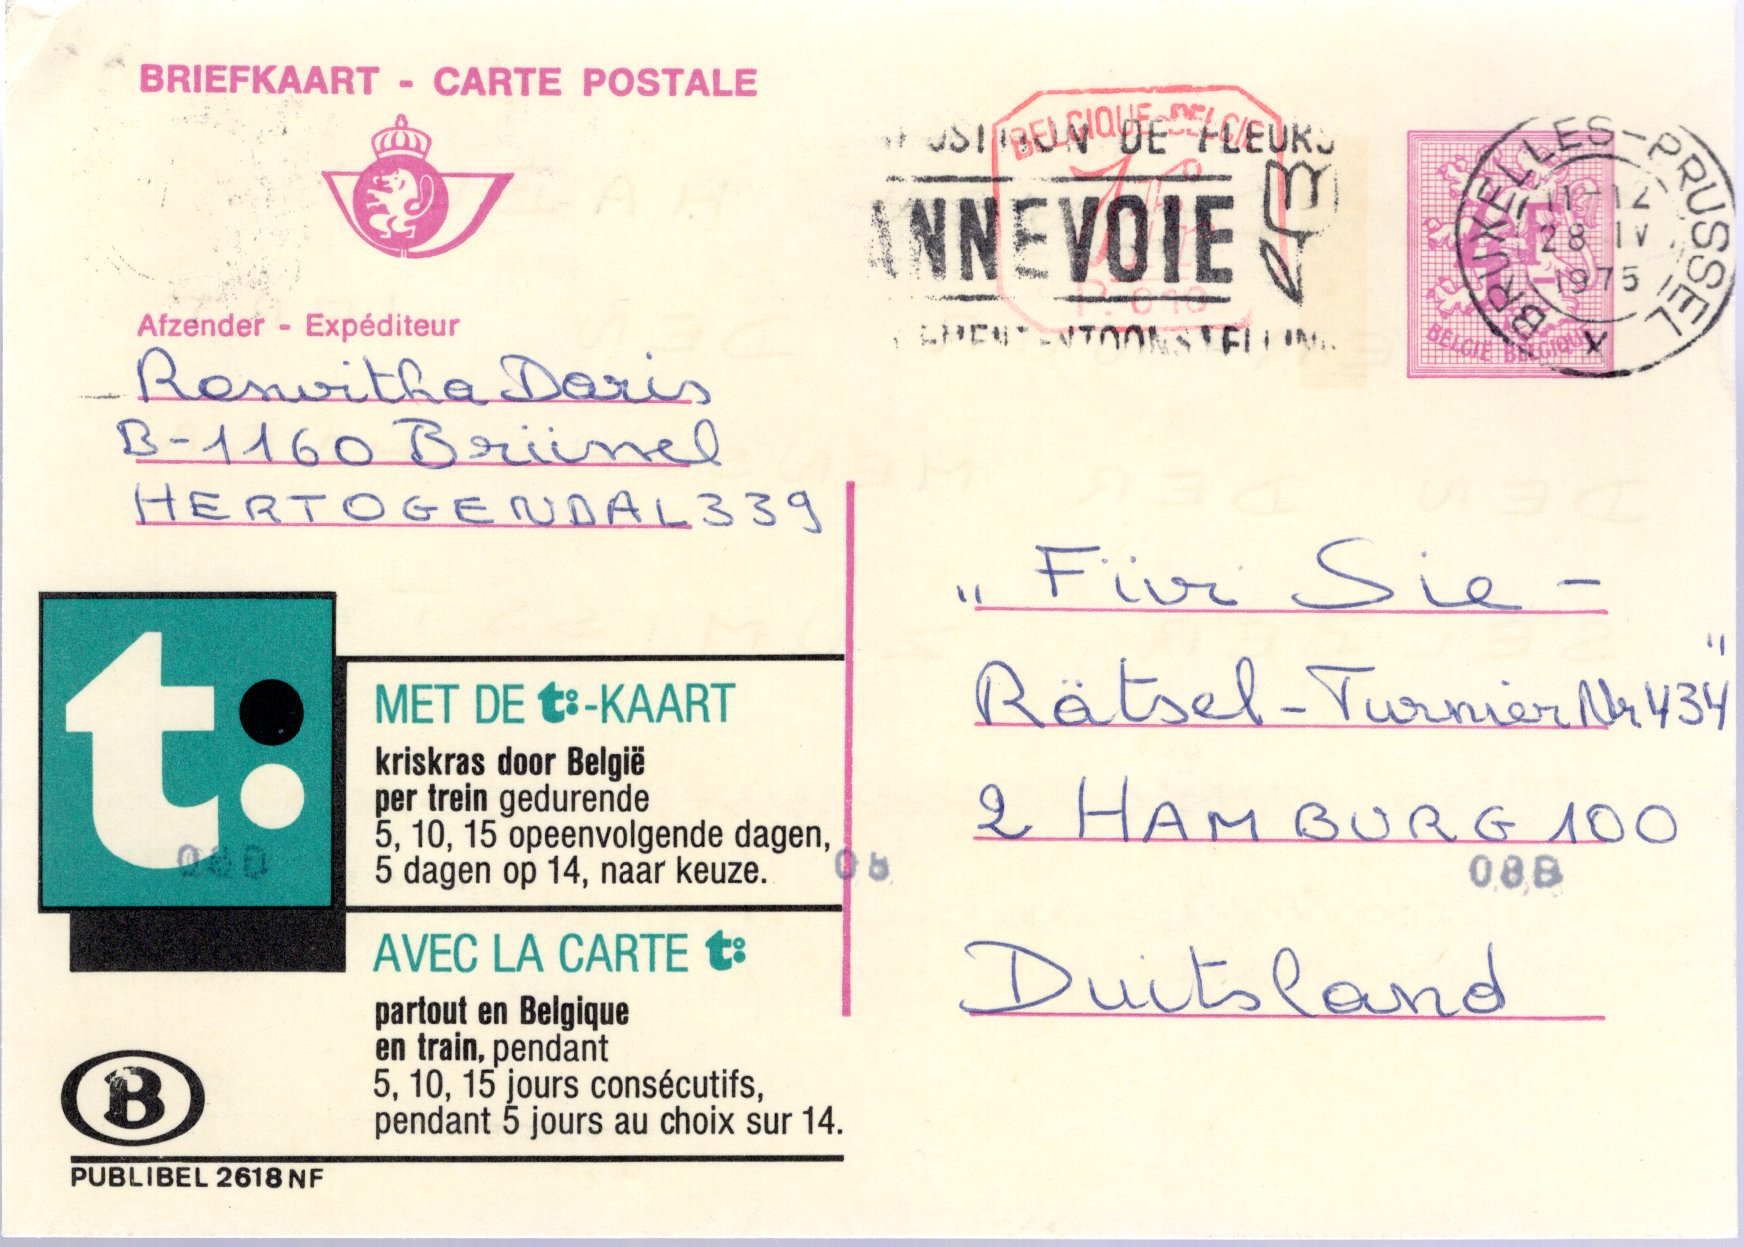 BRIEFKAART - CARTE POSTALE
BELGIQUE-BELGIE
P.010
DE FLEURS
ANNEVOIE
BRUXELLES-PRUSSEL
11-12
28 IV
1975
X
BELGIE BELGIQUE
Afzender - Expéditeur
Roswitha Daris
B-1160 Brüssel
HERTOGENDAL 339
„Für Sie -
Rätsel-Turnier Nr 434"
2 HAMBURG 100
Duitsland
t:
MET DE t:-KAART
kriskras door België
per trein gedurende
5, 10, 15 opeenvolgende dagen,
5 dagen op 14, naar keuze.
AVEC LA CARTE t:
partout en Belgique
en train, pendant
5, 10, 15 jours consécutifs,
pendant 5 jours au choix sur 14.
B
PUBLIBEL 2618 NF